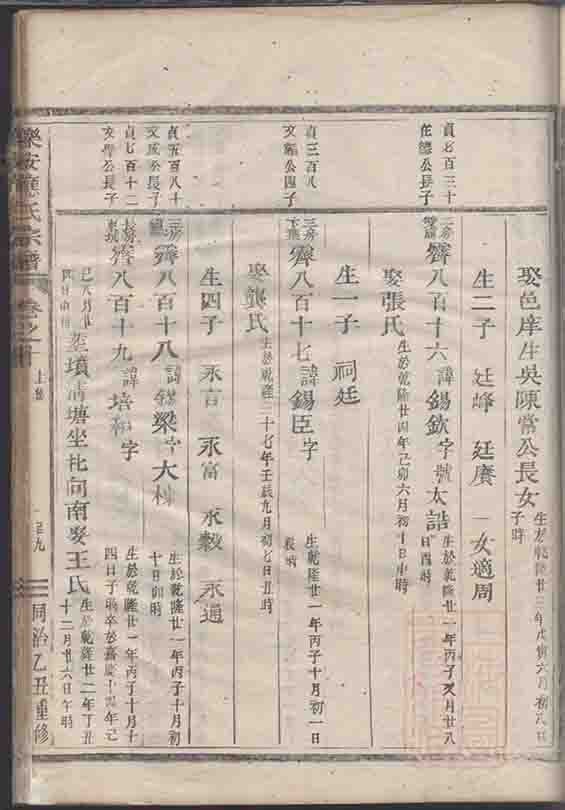 娶邑庠生吳陳常公長女
生於乾隆廿三年戊寅六月初八日
子時
生二子 廷峰 廷賡 一女適周
貞七百三十
在德公長子
二房
齊八百十六 諱錫欽 字號太誥
生於乾隆廿一年丙子 月廿八
日酉時
娶張氏
生於乾隆廿四年己卯六月初十日申時
生一子 祠廷
貞三百八
文 公四子
三房
齊八百十七 諱錫臣 字
生乾隆廿一年丙子十月初一日
時
娶龔氏
生於乾隆三十七年壬辰九月初七日丑時
生四子 永言 永富 永穀 永通
貞五百八十
文成公長子
三房
齊八百十八 諱錫梁 字大
生於乾隆廿一年丙子十月初
十日卯時
貞七百十二
文 公長子
齊八百十九 諱培 字
生於乾隆廿一年丙子十月十
四日子時卒於嘉慶十四年己
墳 塘坐北向南 娶王氏
生於乾隆廿二年丁丑
十二月廿六日午時
樂安 氏宗譜 卷之十
同治乙丑重修